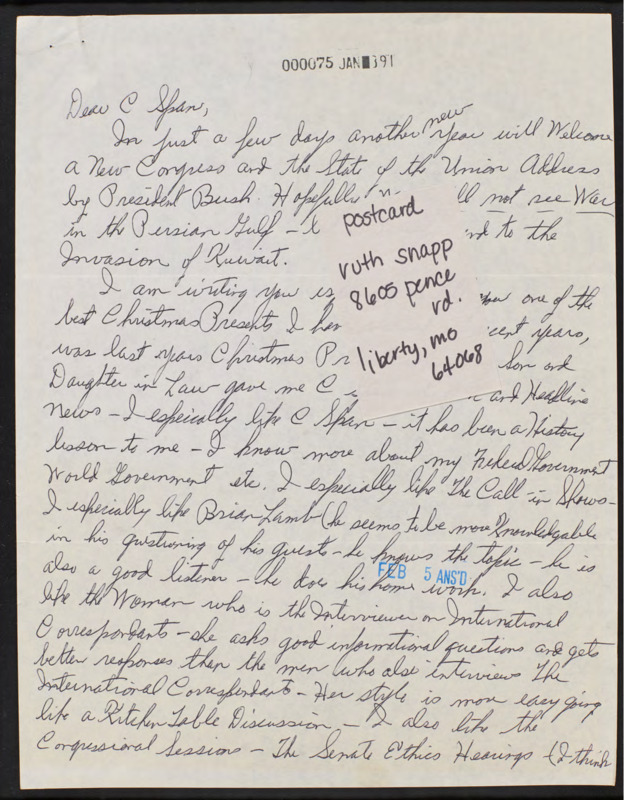 000075 JAN 91
Dear C Span,
In just a few days another new Year will Welcome
a New Congress and the State of the Union Address
by President Bush. Hopefully not see War
in the Persian Gulf – to the
Invasion of Kuwait.
I am writing you one of the
best Christmas Presents I recent years,
was last years Christmas Son and
Daughter in Law gave me C and Headline
News – I especially like C Span – it has been a History
lesson to me – I know more about my Federal Government
World Government etc. I especially like The Call-in Shows–
I especially like Brian Lamb (he seems to be more Knowledgable
in his questioning of his guests – he knows the topic – he is
also a good listener – he does his home work. I also
like the Woman who is the Interviewer on International
Correspondants – she asks good informational questions and gets
better responses then the men who also interviews The
International Correspondants – Her style is more easy going
like a Kitchen Table Discussion. – I also like the
Congressional Sessions – The Senate Ethics Hearings (I think
postcard
ruth snapp
8605 pence
rd.
liberty, mo
64068
FEB 5 ANS'D